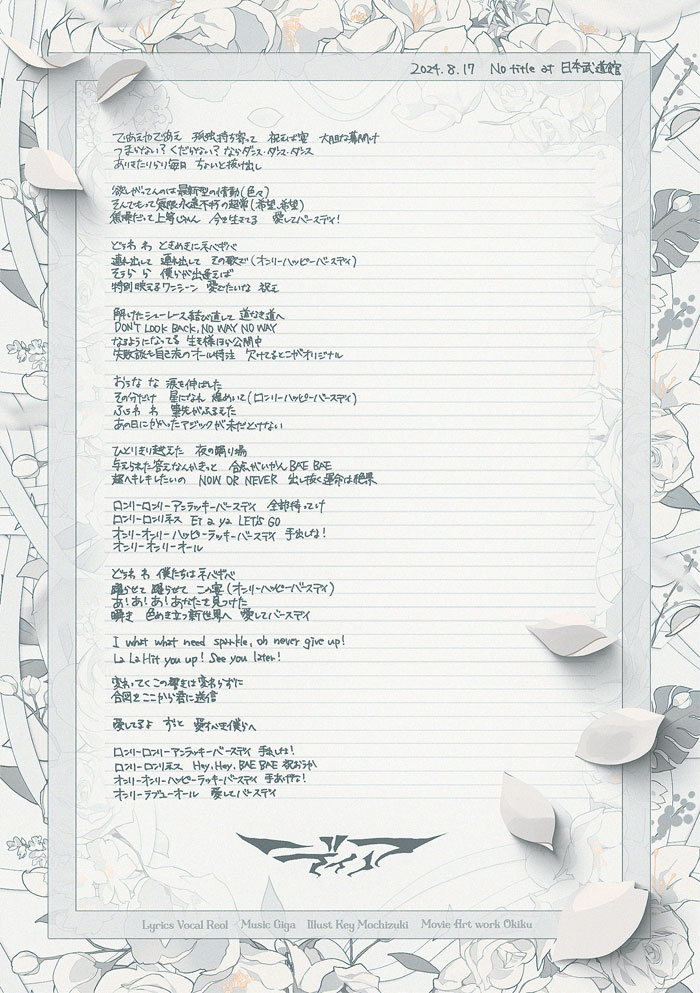 2024.8.17 No title at 日本武道館
であえやであえ 孤独持ち寄って 祝えば宴 大胆な幕開け
つまらない?くだらない?ならダンス・ダンス・ダンス
ありきたりらり毎日 ちょいと抜け出し
欲しがってんのは最新型の情動(色々)
そんでもって無限永遠不朽の超常(希望、希望)
無謀だって上等じゃん 今を生きてる 愛してバースデイ!
どぅわ わ ときめきにネバギバ
連れ出して 連れ出して その歌で(オンリーハッピーバースデイ)
そぅら ら 僕らが出逢えば
特別映えるワンシーン 愛でたいな 祝え
解けたシューレース結び直して 道なき道へ
DON'T LOOK BACK, NO WAY NO WAY
なるようになってる 生き様ほら公開中
失敗談も自己流のオール特注 欠けてるとこがオリジナル
おぅな な 涙を伸ばした
その分だけ 星になれ 煌めいて(ロンリーハッピーバースデイ)
ふぅわ わ 筆先がふるえた
あの日にかかったマジックが未だとけない
ひとりきり越えた 夜の踊り場
与えられた答えなんかきっと 合点がいかん BAE BAE
超ヘキレキしたいの NOW OR NEVER 出し抜く運命は絶景
ロンリーロンリーアンラッキーバースデイ 全部持ってけ
ロンリーロンリネス Er a ya LET'S GO
オンリーオンリーハッピーラッキーバースデイ 手出しな!
オンリーオンリーオール
どぅわ わ 僕たちはネバギバ
踊らせて 踊らせて この宴(オンリーハッピーバースデイ)
あ!あ!あ!あなたを見つけた
瞬き 色めき立つ新世界へ 愛してバースデイ
I what what need sparkle, oh never give up!
La La Hit you up! See you later!
変わってくこの響きは変わらずに
合図をここから君に送信
愛してるよ ずっと 愛すべき僕らへ
ロンリーロンリーアンラッキーバースデイ 手出しな!
ロンリーロンリネス Hey, Hey, BAE BAE 祝おうか
オンリーオンリーハッピーラッキーバースデイ 手あげな!
オンリーラブユーオール 愛してバースデイ
Lyrics Vocal Reol Music Giga Illust Key Mochizuki Movie Art work Okiku